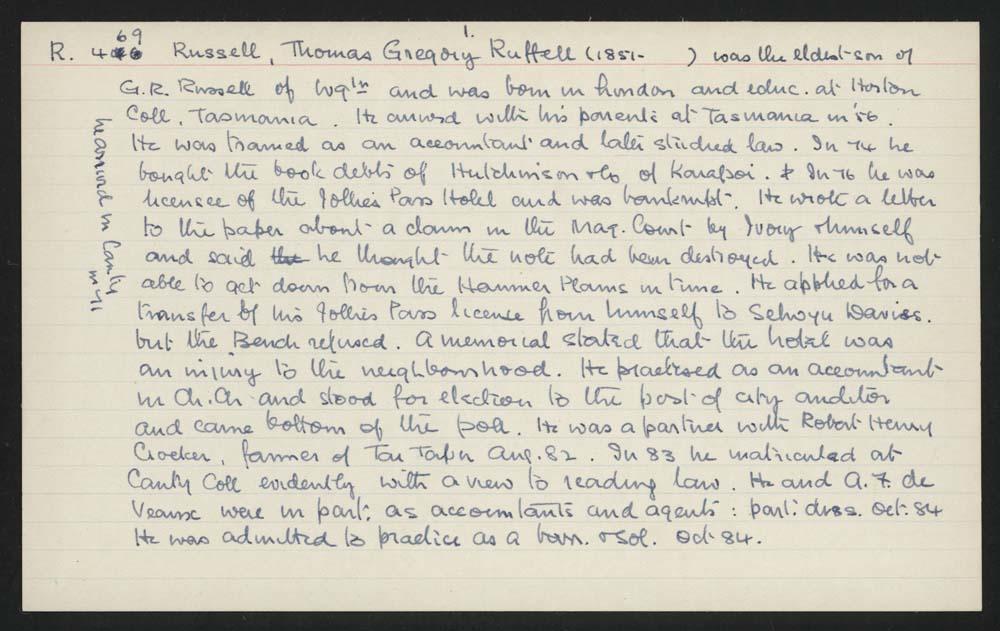 1.
R. 469 Russell, Thomas Gregory Ruffell (1851- ) was the eldest son of
G.R. Russell of Wgtn and was born in London and educ. at Horton
Coll, Tasmania. He arrived with his parents at Tasmania in '56.
He was trained as an accountant and later studied law. In 74 he
bought the book debts of Hutchinson & Co of Kaiapoi. & In 76 he was
licensee of the Jollies Pass Hotel and was bankrupt. He wrote a letter
to the paper about a claim in the Mag. Court by Ivory & himself
and said the he thought the note had been destroyed. He was not
able to get down from the Hanmer Plains in time. He applied for a
transfer of his Jollies Pass license from himself to Selwyn Davies.
but the Bench refused. A memorial stated that the hotel was
an injury to the neighbourhood. He practised as an accountant
in Ch.Ch and stood for election to the post of city auditor
and came bottom of the poll. He was a partner with Robert Henry
Crocker, farmer of Tai Tapu Aug. 82. In 83 he matriculated at
Canty Coll evidently with a view to reading law. He and A.F. de
Veaux were in part: as accountants and agents: part: diss. Oct. 84
He was admitted to practice as a barr. & sol. Oct 84.
he arrived in Canty
in 71